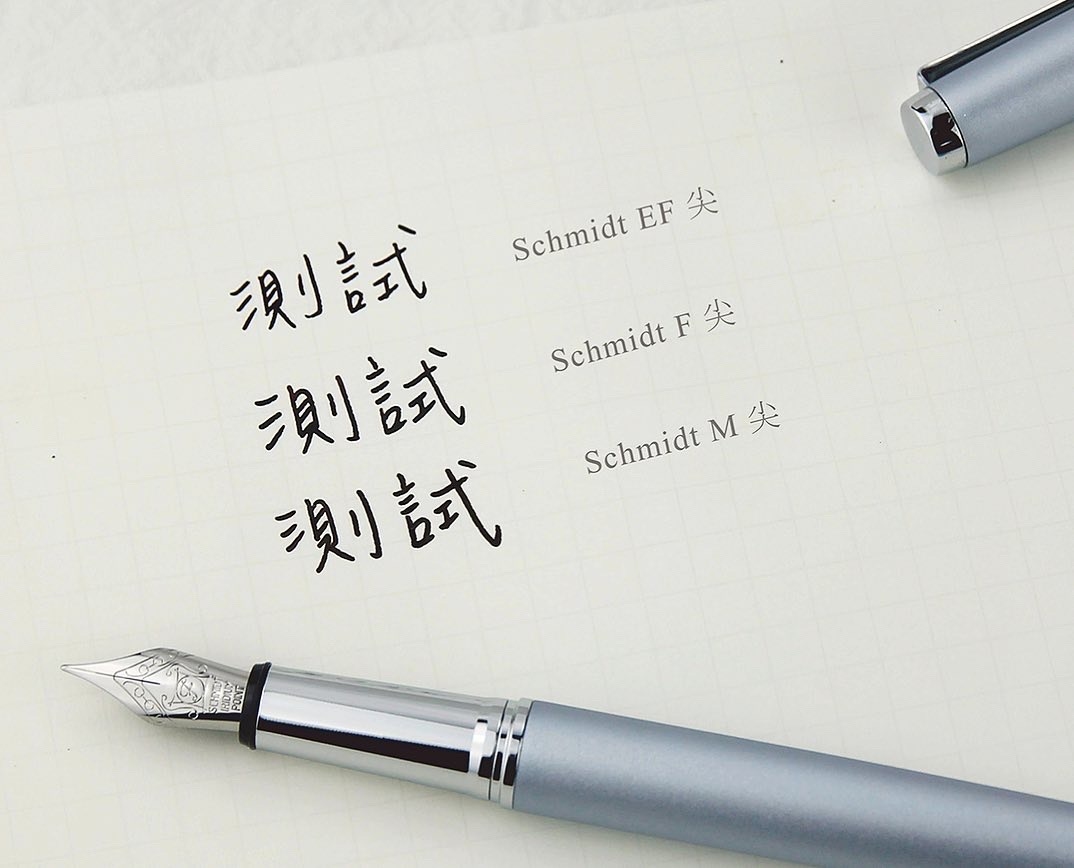 測試 Schmidt EF 尖
測試 Schmidt F 尖
測試 Schmidt M 尖
SCHMIDT
IRIDIUM
POINT